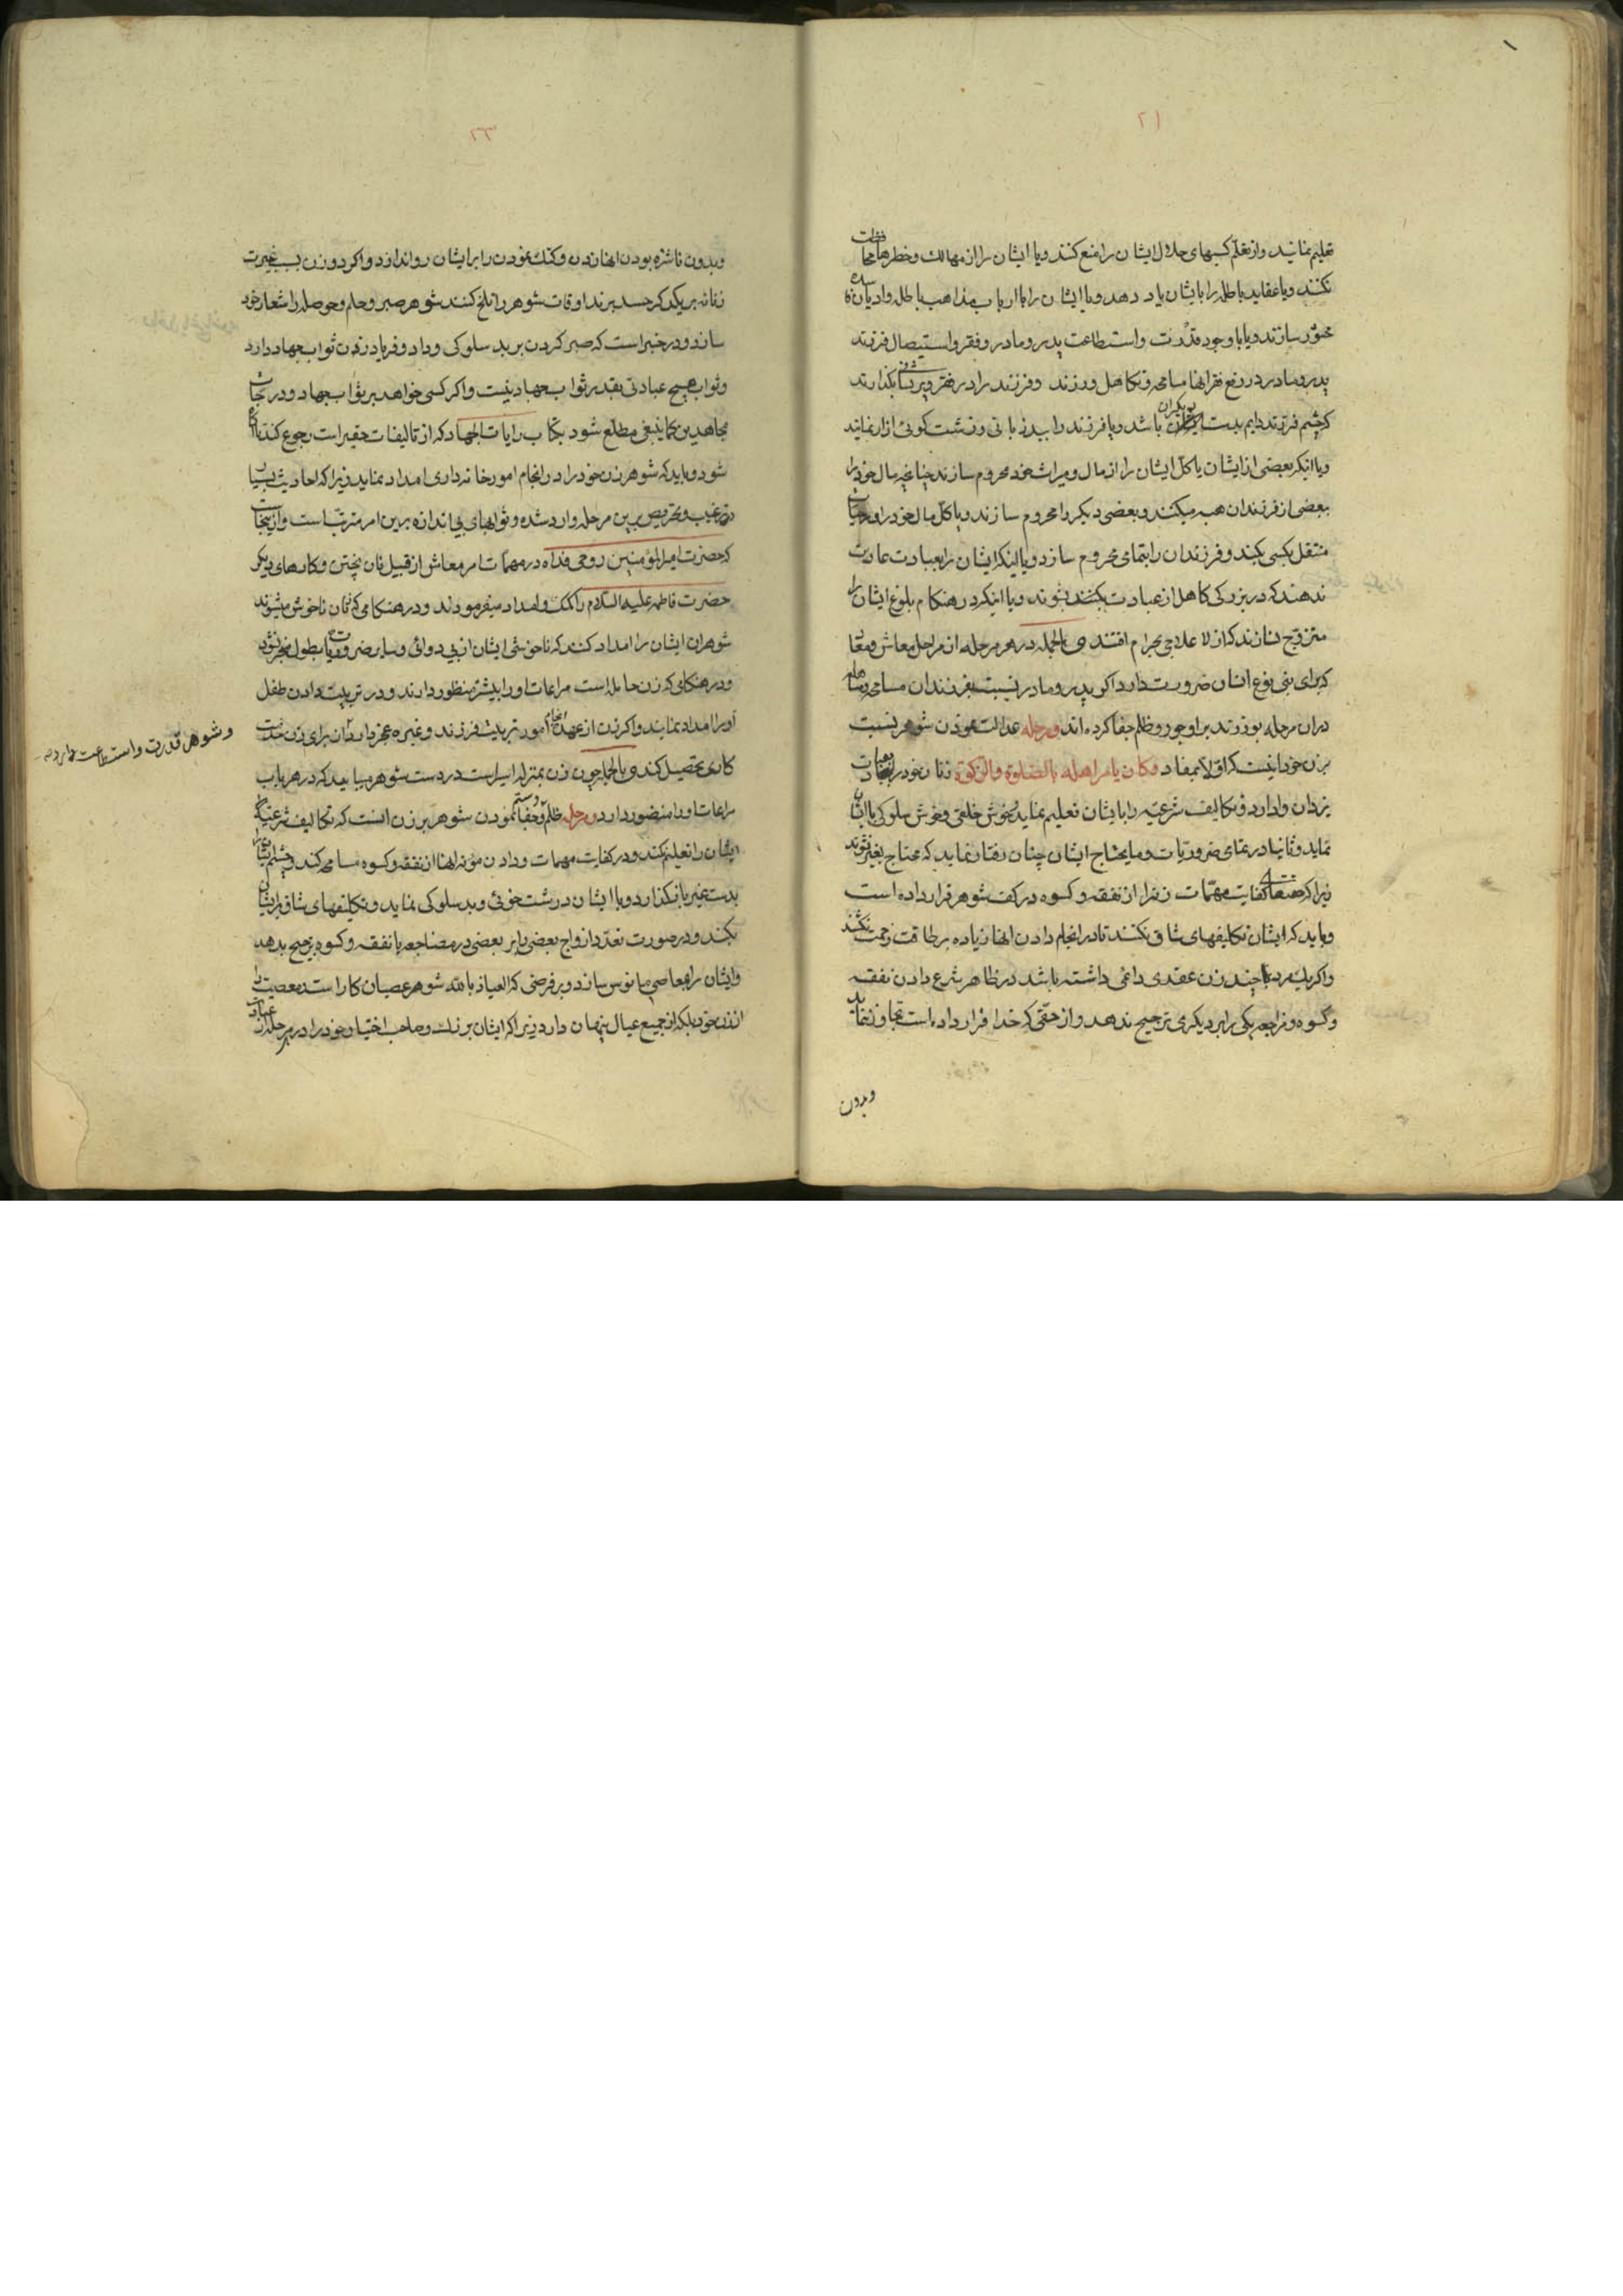 ۲۱
تعلیم نمایند و از تعلّم کسبهای حلال ایشان را منع کنند و یا ایشان را از مهالک و خطرها محافظت
نکنند و یا عقاید باطله را بایشان یاد دهد و یا ایشان را با ارباب مذاهب باطله و ادیان
محشور سازند و یا با وجود قدرت و استطاعت پدر و مادر و فقر و استیصال فرزند
پدر و مادر در رفع فقر انها مسامحه و تکاهل ورزند و فرزند را در فقر و پریشانی بگذارند
که چشم فرزند دایم بدست دیگران باشد و یا فرزند را ببد زبانی و زشت کوئی ازار نمایند
و یا اینکه بعضی از ایشان یا کلّ ایشان را از مال و میراث خود محروم سازند چنانچه مال خود را
ببعضی از فرزندان هبه میکنند و بعضی دیکر را محروم سازند و یا کلّ مال خود را در حیات
منتقل بکسی بکند و فرزندان را بتمامی محروم سازد و یا اینکه ایشان را بعبادت عادت
ندهند که در بزرکی کاهل از عبادت بشوند و یا اینکه در هنکام بلوغ ایشان را
متزوّج نسازند که از لا علاجی بحرام افتند و بالجمله در هر مرحله از مراحل معاش و معاد
که برای بنی نوع انسان ضرورت دارد اکر پدر و مادر نسبت بفرزندان مسامحه و تساهل
در ان مرحله بورزند بر او جور و ظلم و جفا کرده اند و مرحله عدالت نمودن شوهر نسبت
بزن خود اینست که اوّلا بمفاد وکان یأمر اهله بالصلوة والزکوة زنان خود را بعبادت
یزدان وادارد و تکالیف شرعیه را بایشان تعلیم نماید و خوش خلقی و خوش سلوکی با ایشان
نماید و ثانیا در تمامی ضروریات و مایحتاج ایشان چنان رفتار نماید که محتاج بغیر نشوند
زیرا که حقتعالی کفایت مهمّات زنرا از نفقه و کسوه در کف شوهر قرار داده است
و باید که ایشان تکلیفهای شاق نکنند تا در انجام دادن انها زیاده بر طاقت زحمت نکشند
و اکر یک مرد با چند زن عقدی دائمی داشته باشد در ظاهر شرع دادن نفقه
و کسوه و مضاجعه یکی را بر دیکری ترجیح ندهد و از حقّی که خدا قرار داده است تجاوز ننماید
وبدون
۲۲
وبدون ناشزه بودن انها زدن و کتک نمودن را بر ایشان روا ندارد و اکر دو زن بسبب غیرت
زنانه بر یکدیکر حسد برند و اوقات شوهر را تلخ کنند شوهر صبر و حلم و حوصله را شعار خود
سازد و در خبر است که صبر کردن بر بد سلوکی و داد و فریاد زدن ثواب جهاد دارد
و ثواب هیچ عبادتی بقدر ثواب جهاد نیست و اکر کسی خواهد بر ثواب جهاد و درجات
مجاهدین کما ینبغی مطلع شود بکتاب رایات الجهاد که از تالیفات حقیر است رجوع کند تا آکاه
شود و باید که شوهر زن خود را در انجام امور خانه داری امداد نماید زیرا که احادیث بسیار
در ترغیب و تحریص بر این مرحله وارد شده و ثوابهای بی اندازه بر این امر مترتّب است و از اینجاست
که حضرت امیر المؤمنین روحی فداه در مهمات امر معاش از قبیل نان پختن و کارهای دیکر
حضرت فاطمه علیها السلام را کمک و امداد میفرمودند و در هنکامی که زنان ناخوش میشوند
شوهران ایشان را امداد کنند که ناخوشی ایشان از بی دوائی و سایر ضروریات بطول منجر نشود
و در هنکامی که زن حامله است مراعات او را بیشتر منظور دارند و در تربیت دادن طفل
او را امداد نمایند و اکر زن از عهده انجام امور تربیت فرزند و غیره عجز دارد آن برای زن خدمت
وشوهر قدرت و استطاعت دارد
کاری تحصیل کند و بالجمله چون زن بمنزله اسیر است در دست شوهر میباید که در هر باب
مراعات او را منضور دارد و مرحله ظلم و جفا و ستم نمودن شوهر بر زن انست که تکالیف شرعیّه
ایشان را تعلیم نکند و در کفایت مهمات و دادن مونه انها از نفقه و کسوه مسامحه کند و چشم ایشان را
بدست غیر باز کذارد و با ایشان درشت خوئی و بد سلوکی نماید و تکلیفهای شاق بر ایشان
بکند و در صورت تعدّد ازواج بعضی را بر بعضی در مضاجعه یا نفقه و کسوه ترجیح بدهد
و ایشان را بمعاصی مانوس سازد و بر فرضی که العیاذ بالله شوهر عصیان کار است معصیت را
از زن خود بلکه از جمیع عیال پنهان دارد زیرا که ایشان برنک صاحب اختیار خود را در هر مرحله